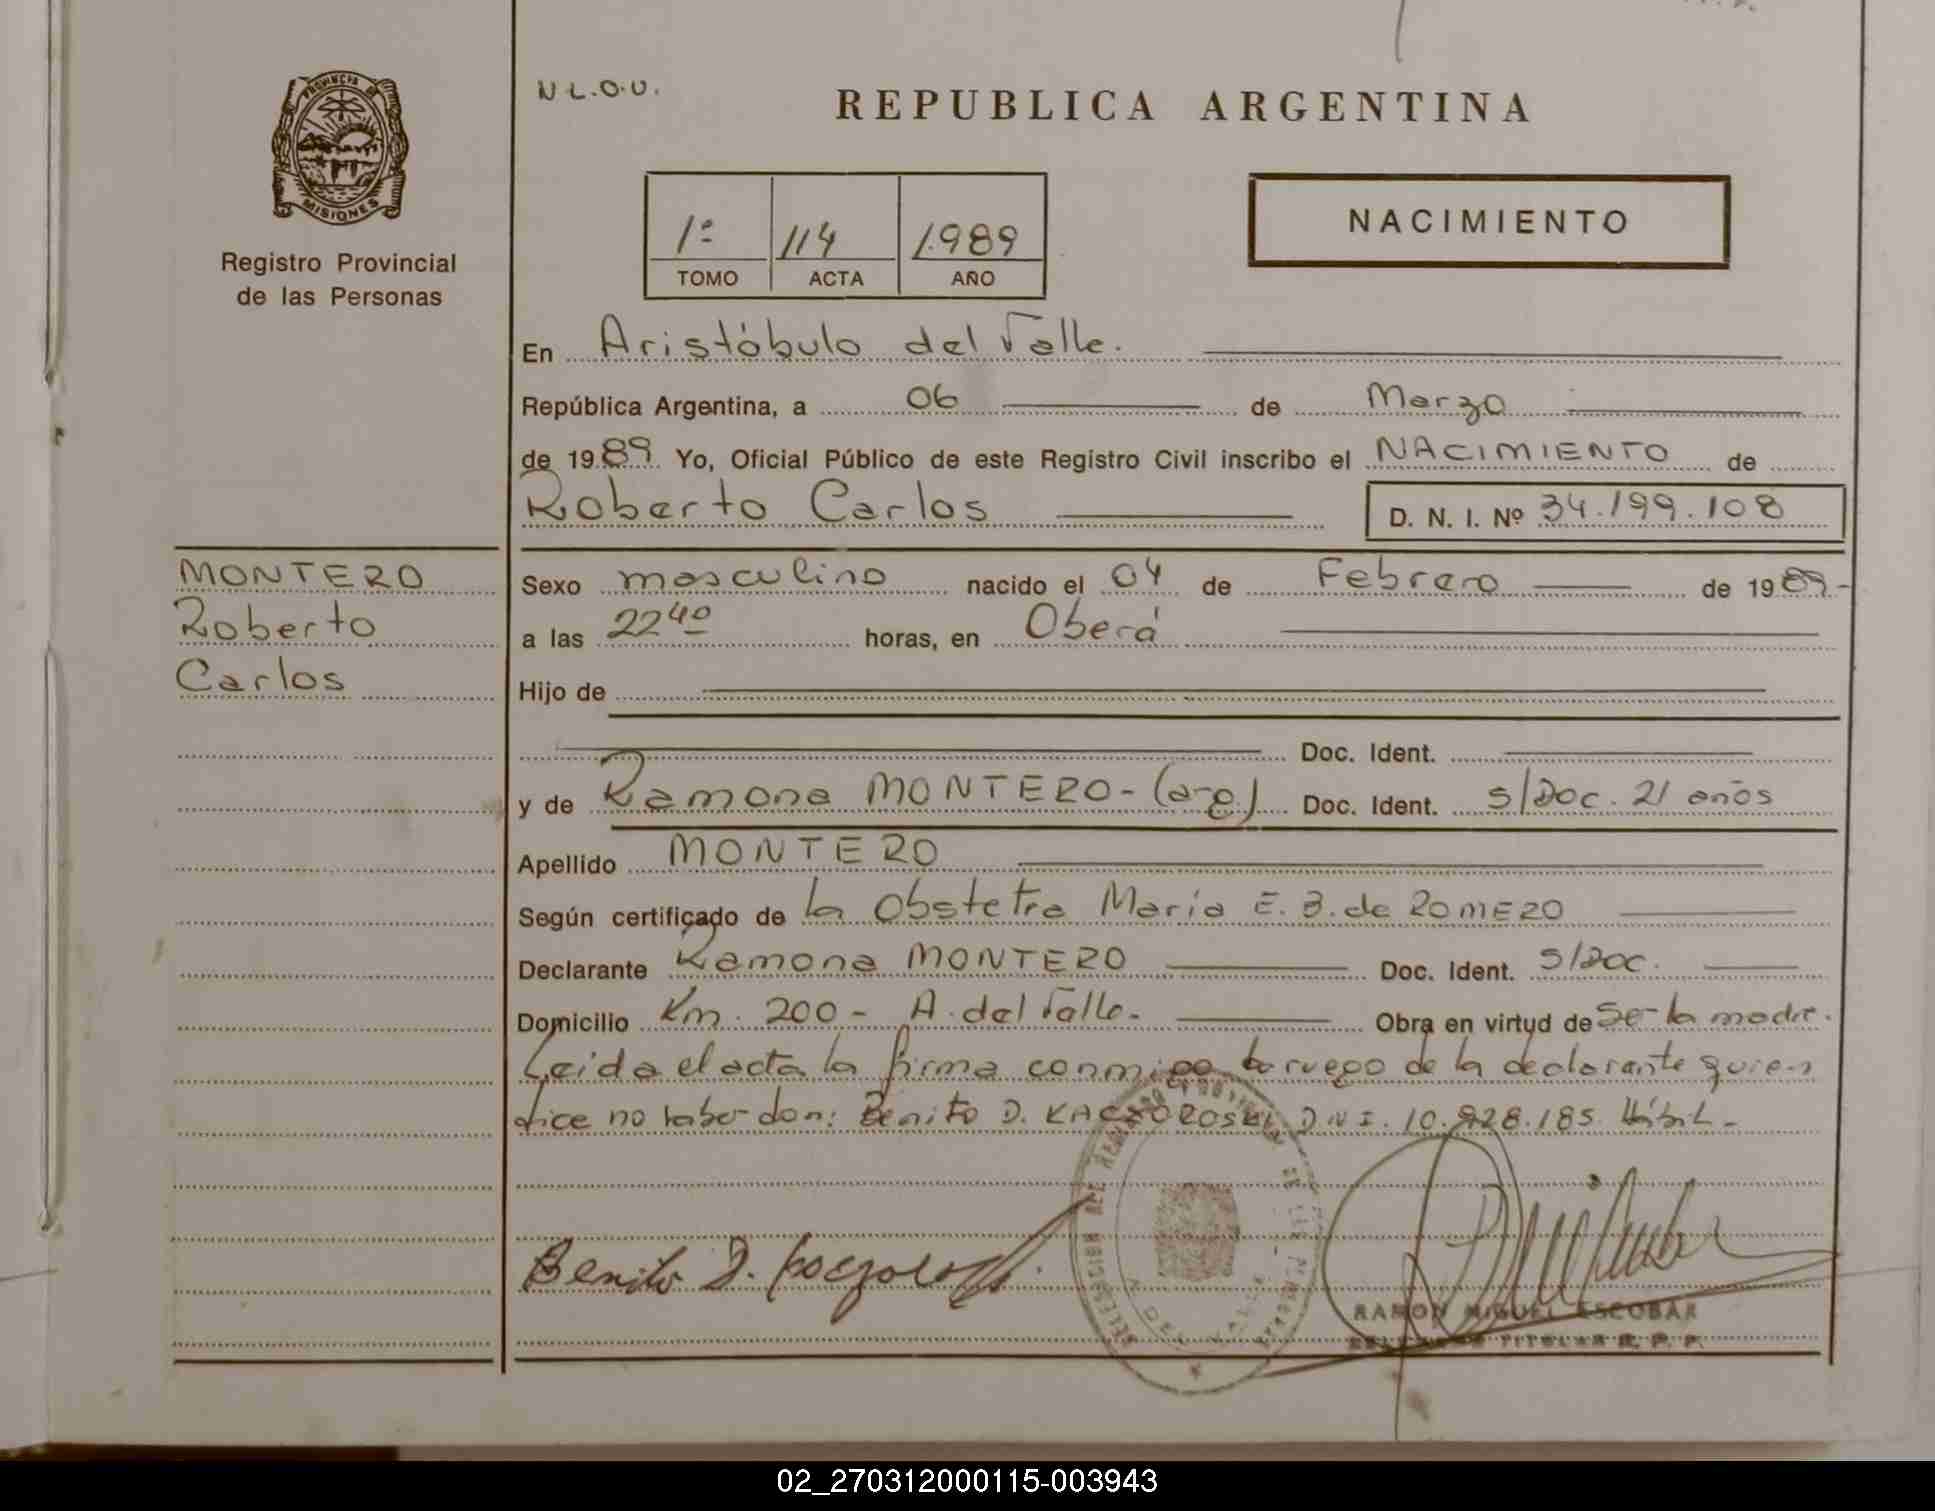 PROVINCIA DE
MISIONES
Registro Provincial
de las Personas
N.L.O.U.
REPUBLICA ARGENTINA
1º 114 1.989
TOMO ACTA AÑO
NACIMIENTO
En Aristóbulo del Valle.
República Argentina, a 06 de Marzo
de 1989 Yo, Oficial Público de este Registro Civil inscribo el NACIMIENTO de
Roberto Carlos D. N. I. Nº 34.199.108
MONTERO
Roberto
Carlos
Sexo masculino nacido el 04 de Febrero de 1989-
a las 22 40 horas, en Oberá
Hijo de
Doc. Ident.
y de Ramona MONTERO- Doc. Ident. s/Doc. 21 años
Apellido MONTERO
Según certificado de la Obstetra Maria E. B. de ROMERO
Declarante Ramona MONTERO Doc. Ident. S/Doc.
Domicilio Km. 200- A. del Valle. Obra en virtud de Ser la madre.
Leida el acta la firma conmigo a ruego de la declarante quien
dice no saber don: Benito D. KACZOROSKI D.N.I. 10.928.185. Hábil-
DELEGACION DEL REGISTRO PROVINCIAL DE LAS PERSONAS
A. DEL VALLE
Benito D.
RAMON MIGUEL ESCOBAR
DELEGADO TITULAR R. P. P.
02_270312000115-003943